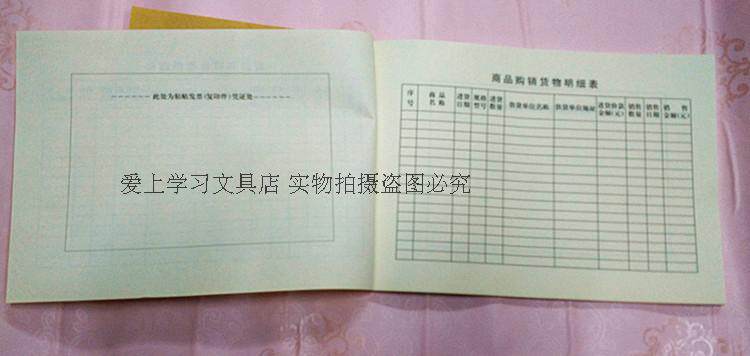 此处为粘贴发票(复印件)凭证处
爱上学习文具店 实物拍摄盗图必究
商品购销货物明细表
序号 商品名称 进货日期 规格型号 进货数量 供货单位名称 供货单位地址 进货价款金额(元) 销售数量 销售日期 销售金额(元)